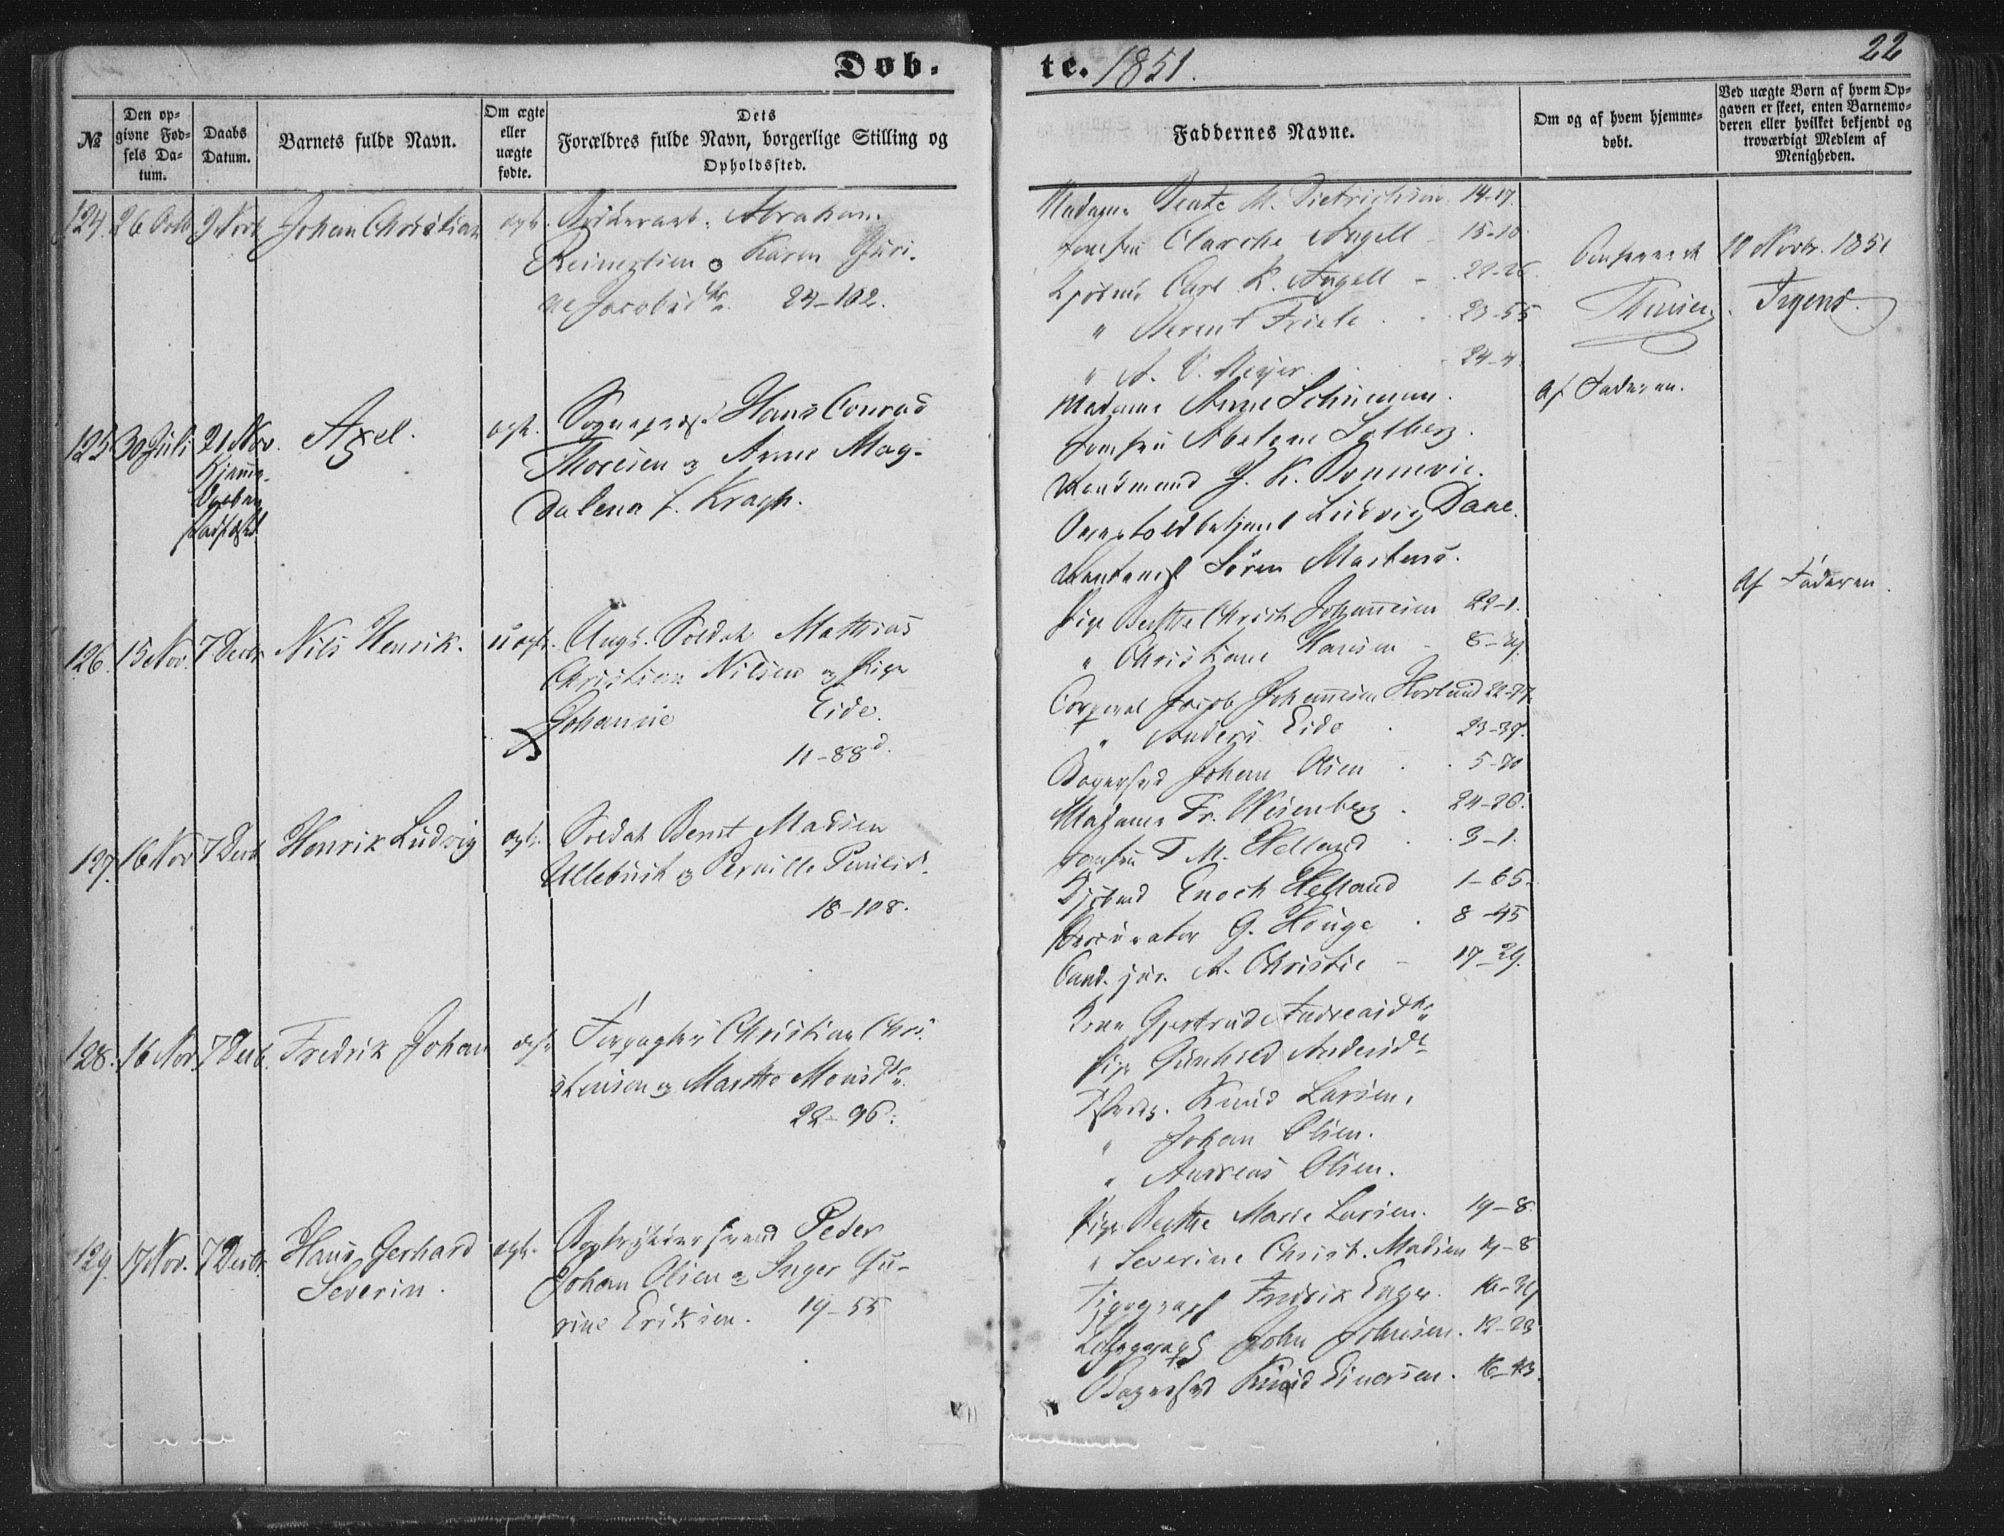 Døb-
te. 1851.
22
№
Den op-
givne Fød-
sels Da-
tum.
Daabs
Datum.
Barnets fulde Navn.
Om ægte
eller
uægte
fødte.
Dets
Forældres fulde Navn, borgerlige Stilling og
Opholdssted.
Faddernes Navne.
Om og af hvem hjemme-
døbt.
Ved uægte Børn af hvem Op-
gaven er skeet, enten Barnemo-
deren eller hvilket bekjendt og
troværdigt Medlem af
Menigheden.
124. 26 Octb 9 Novb Johan Christian ægte. Abraham
Reimertsen og Karen Guri-
ne Jacobsdtr. 24-102.
Madame Beate M. Dietrichsen 14-17.
Jomfru Clarche Angell - 15-10.
Kjøbmd Carl K. Angell -
" Berent Friele 23-55
" A. V. Meyer. 24-4
Confereret 10 Novbr. 1851
Irgens.
125 30 Juli 21 Nov. Axel. ægte. Sognepræst Hans Conrad
Hjemme-
Thoresen og Anne Mag-
dalena f. Kragh.
Madame Anne Schumann.
Jomfru Abelone Solberg.
J. K.
Overtoldbetjent Ludvig Daae.
Søren Martens.
Af Faderen.
126. 15 Nov. 7 Decbr Nils Henrik. uægte. Ungk. Soldat Mathias
Christian Nilsen og Pige
Johanne Eide.
11-88d.
Pige Berthe Christ. Johannesen 22-1.
" Christiane Hansen - 8-
Corporal Jacob Johannesen
" Anders Eide 23-37.
Bagersvd Johan Olsen 5-70
Af Faderen.
127. 16 Nov 7 Decb Henrik Ludvig ægte. Soldat Bernt Madsen
Ullebust og Pernille Paulsd.
18-108.
Madame Fr. Wesenberg. 24-26.
Jomfru T M. Helland 3-1.
Kjøbmd Enoch Helland 1-65.
Procurator G. Houge 8-45
Cand. jur. A. Christie - 17-29.
128. 16 Nov. 7 Decb. Fredrik Johan ægte Forpagter Christian Chri-
stensen og Marthe Monsdtr.
22-96.
Kone Gjertrud Andreasdtr
Pige Gunhild Andersdtr
Knud Larsen.
" Johan Olsen.
" Andreas Olsen.
129. 17 Nov. 7 Decbr. Hans Gerhard
Severin. ægte. Peder
Johan Olsen og Inger Gu-
rine Eriksen. 19-55
Pige Berthe Marie Larsen. 19-8
" Severine Christ. Madsen 19-8
Typograph Fredrik Enger.
Lithograph John Johnsen. 12-23
Bagersvd Knud Einersen. 16-43.